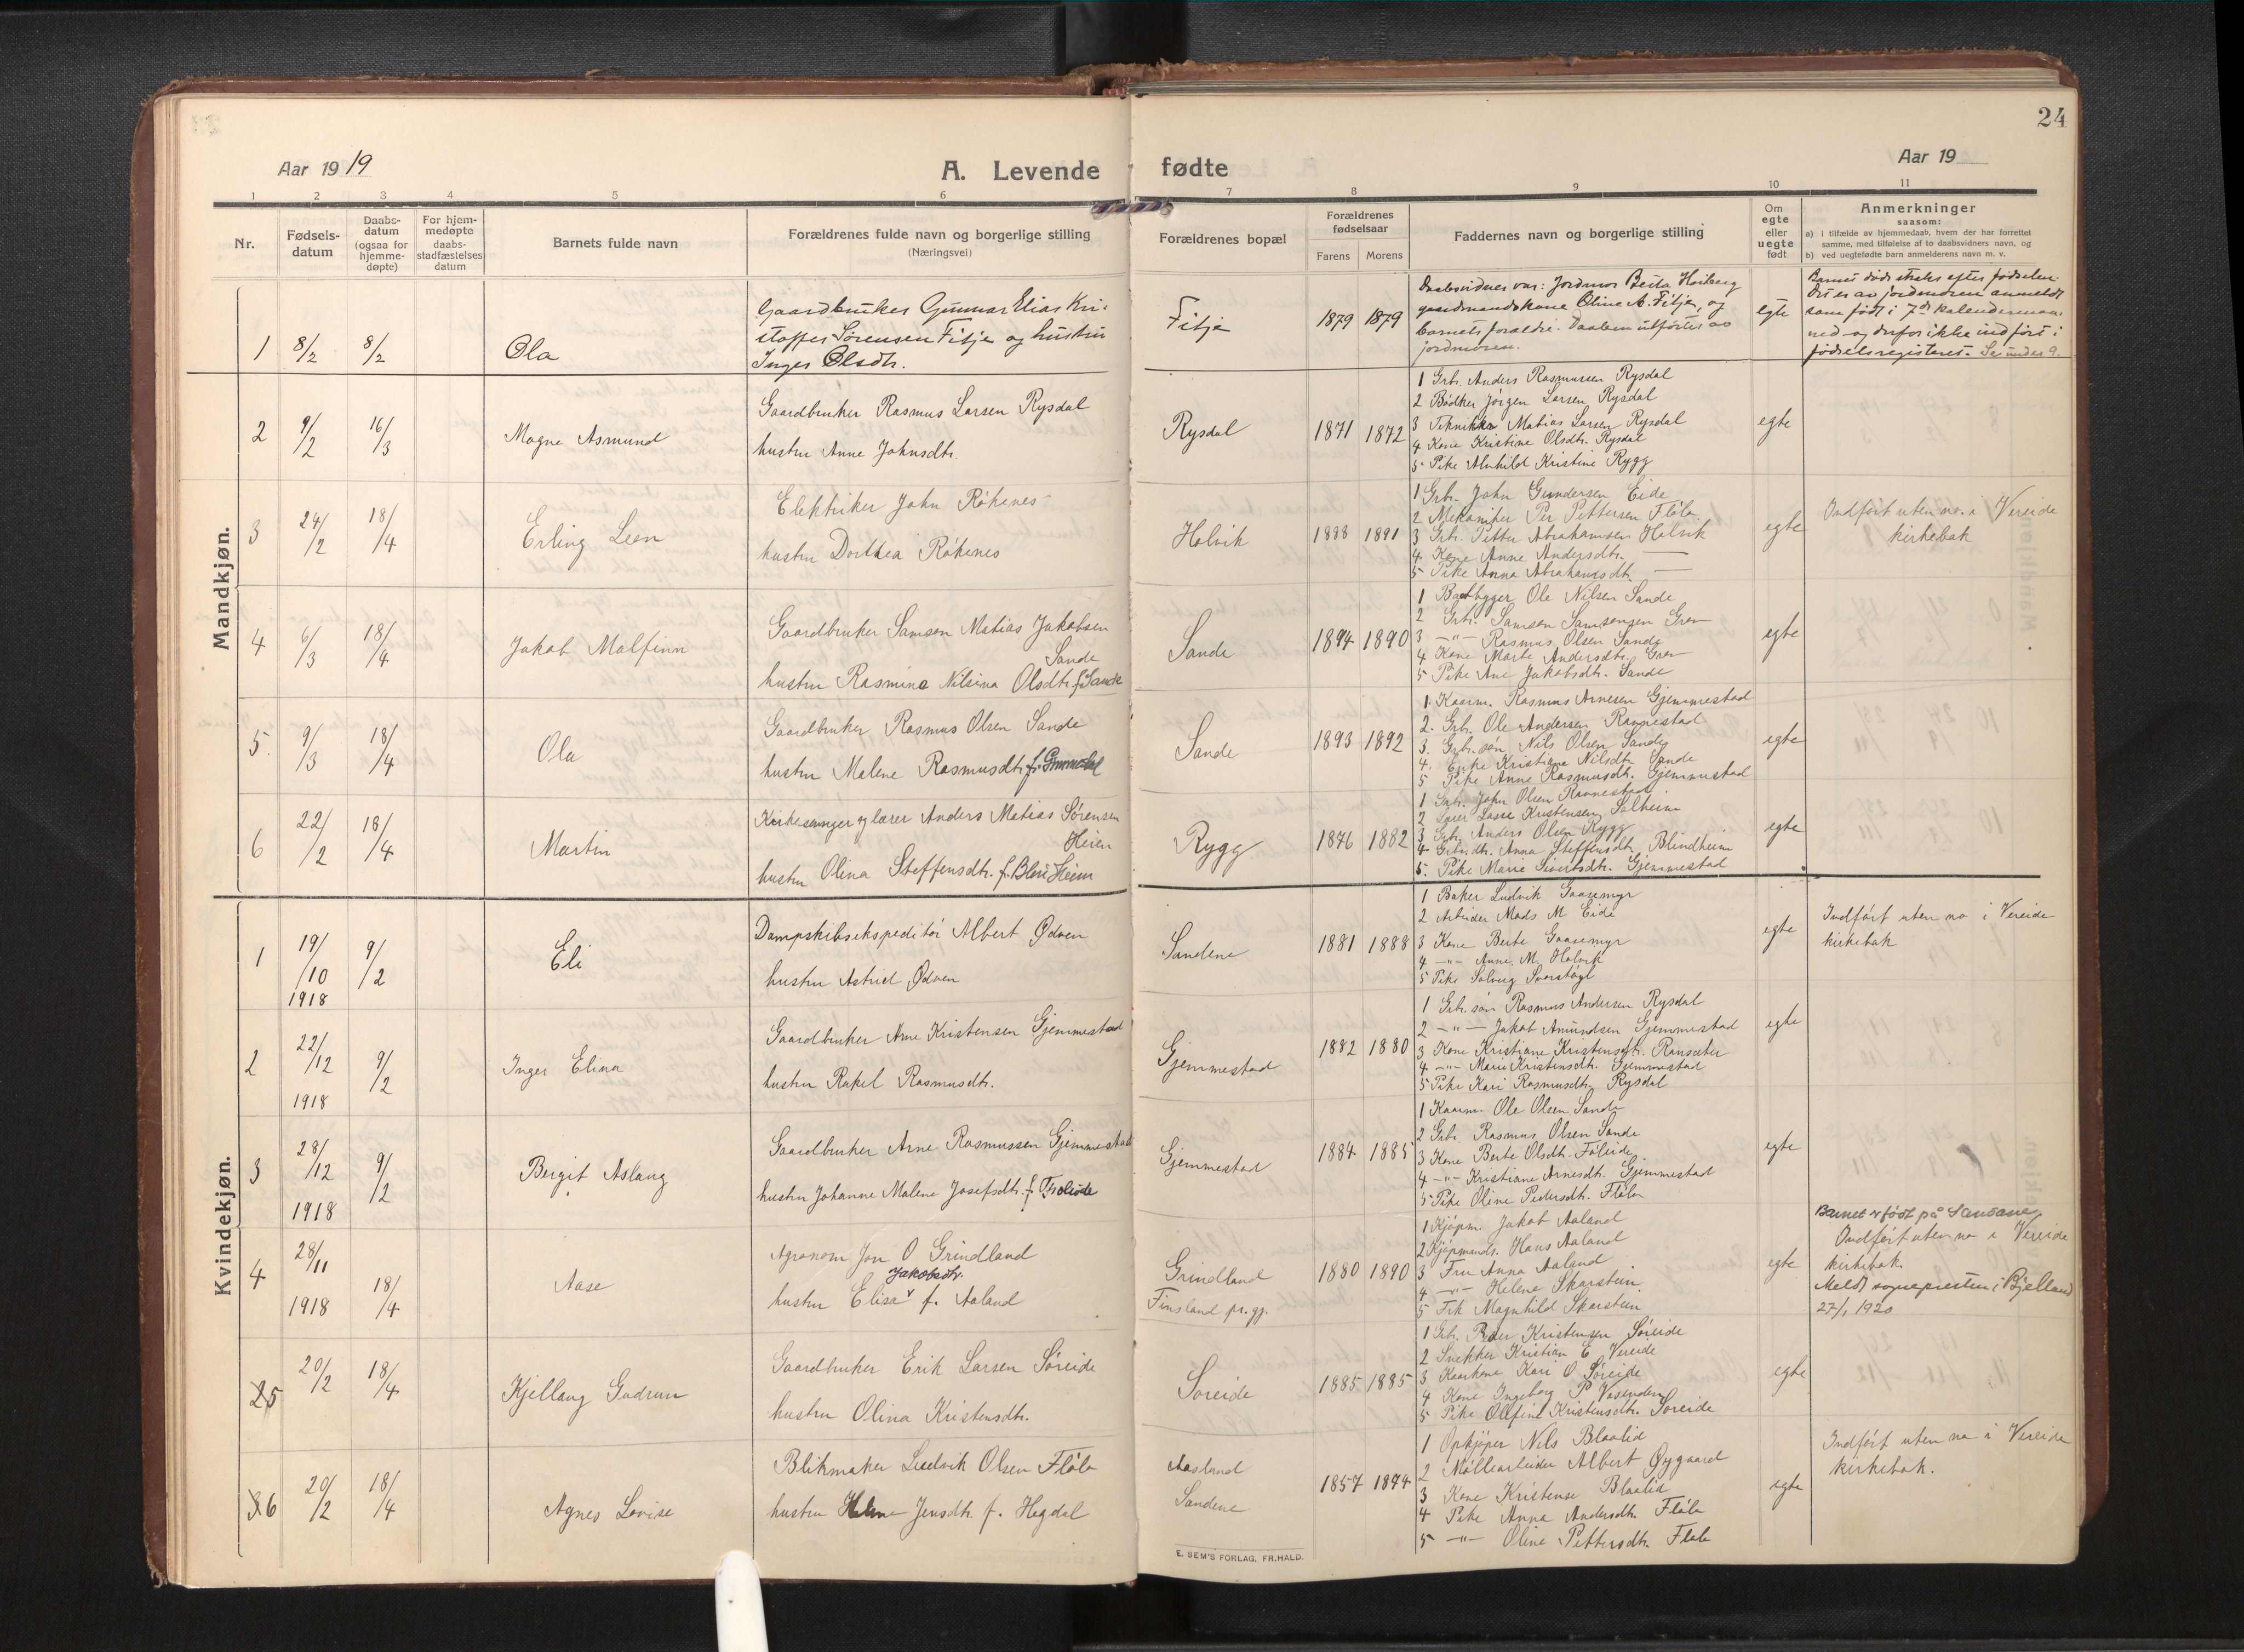 24
Aar 1919
A. Levende fødte
Aar 19
1 2 3 4 5 6 7 8 9 10 11
Nr.
Fødsels-
datum
Daabs-
datum
(ogsaa for
hjemme-
døpte)
For hjem-
medøpte
daabs-
stadfæstelses
datum
Barnets fulde navn
Forældrenes fulde navn og borgerlige stilling
(Næringsvei)
Forældrenes bopæl
Forældrenes
fødselsaar
Farens Morens
Faddernes navn og borgerlige stilling
Om
egte
eller
uegte
født
Anmerkninger
saasom:
a) i tilfælde av hjemmedaab, hvem der har forrettet
samme, med tilføielse af to daabsvidners navn, og
b) ved uegtefødte barn anmelderens navn m. v.
Mandkjøn.
1 8/2 8/2 Ola
Gaardbruker Gunnar Elias Kri-
stoffer Sørensen Fitje og hustru
Inger Olsdtr.
Fitje 1879 1879
Daabsvidner var: Jordmor Berta Hoiberg
gaardmandskone Oline A. Fitje, og
barnets foraldre. Daaben utførtes av
jordmoren.
egte
Barnet døde straks efter fødselen.
Det er av jordmoren anmeldt
som født i 7de kalendermaa-
ned og derfor ikke indført i
fødselsregisteret. Se under 9.
2 9/2 16/3 Magne Asmund
Gaardbruker Rasmus Larsen Rysdal
hustru Anne Johnsdtr.
Rysdal 1871 1872
1 Grbr. Anders Rasmussen Rysdal
2 Bødker Jørgen Larsen Rysdal
3 Tekniker Matias Larsen Rysdal
4 Kone Kristine Olsdtr. Rysdal
5 Pike Alvhild Kristine Rygg
egte
3 24/2 18/4 Erling Leon
Elektriker John Røkenes
hustru Dorthea Røkenes
Holvik 1888 1891
1 Grbr. John Gundersen Eide
2 Mekaniker Per Pettersen Fløla
3 Grbr. Petter Abrahamsen Holvik
4 Kone Anne Andersdtr. —
5 Pike Anna Abrahamsdtr. —
egte
Indført uten no. i Vereide
kirkebok
4 6/3 18/4 Jakob Malfinn
Gaardbruker Samson Matias Jakobsen
Sande
hustru Rasmine Nilsina Olsdtr. f. Sande
Sande 1894 1890
1 Baatbygger Ole Nilsen Sande
2 Grbr. Samson Samsonsen Grov
3 —"— Rasmus Olsen Sande
4 Kone Marte Andersdtr. Grov
5 Pike Ane Jakobsdtr. Sande
egte
5. 9/3 18/4 Ola
Gaardbruker Rasmus Olsen Sande
hustru Malene Rasmusdtr. f.
Sande 1893 1892
1. Kaarm. Rasmus Arnesen Gjemmestad
2. Grbr. Ole Andersen Ravnestad
3. Grbr. søn Nils Olsen Sande
4. Enke Kristiane Nilsdtr. Sande
5 Pike Anne Rasmusdtr. Gjemmestad
egte
6 22/2 18/4 Martin
Kirkesanger og lærer Anders Matias Sørensen
Heien
hustru Olina Steffensdtr. f.
Rygg 1876 1882
1 Grbr. John Olsen Ravnestad
2 Lærer Lasse Kristensen Solheim
3 Grbr. Anders Olsen Rygg
4 Grbr.dtr. Anna Steffensdtr. Blindheim
5. Pike Marie Sivertsdtr. Gjemmestad
egte
Kvindekjøn.
1 19/10 1918 9/2 Eli
Dampskibsekspeditør Albert Ødven
hustru Astrid Ødven
Sandene 1881 1888
1 Baker Ludvik Gaasemyr
2 Arbeider Mads M Eide
3 Kone Berte Gaasemyr
4 —"— Anne M. Holvik
5 Pike Solveig
egte
Indført uten no i Vereide
kirkebok
2 22/12 1918 9/2 Inger Elina
Gaardbruker Arne Kristensen Gjemmestad
hustru Rakel Rasmusdtr.
Gjemmestad 1882 1880
1 Grbr. søn Rasmus Andersen Rysdal
2 —"— Jakob Amundsen Gjemmestad
3 Kone Kristiane Kristensdtr. Ravsæter
4 —"— Marie Kristensdtr. Gjemmestad
5 Pike Kari Rasmusdtr. Rysdal
egte
3 28/12 1918 9/2 Bergit Aslaug
Gaardbruker Arne Rasmussen Gjemmestad
hustru Johanne Malene Josefsdtr. f.
Gjemmestad 1884 1885
1 Kaarm. Ole Olsen Sande
2 Grbr. Rasmus Olsen Sande
3 Kone Berte Olsdtr. Føleide
4 —"— Kristiane Arnesdtr. Gjemmestad
5 Pike Oline Pedersdtr. Fløla
egte
4 28/11 1918 18/4 Aase
Agronom Jon O Grindland
Jakobsdtr.
hustru Elisa f. Aaland
Grindland
Finsland pr.gj.
1880 1890
1 Kjøpm. Jakob Aaland
2 Kjøpmands. Hans Aaland
3 Fru Anna Aaland
4 —"— Helene Skarstein
5 Frk Magnhild Skarstein
egte
Barnet er født på Sandane
Indført uten no i Vereide
kirkebok.
Meldt sognepresten i Bjelland
27/1 1920
5 20/2 18/4 Kjellaug Gudrun
Gaardbruker Erik Larsen Søreide
hustru Olina Kristensdtr.
Søreide 1885 1885
1 Grbr. Peder Kristensen Søreide
2 Snekker Kristian E Vereide
3 Kaarkone Kari O Søreide
4 Kone Ingeborg P Vasenden
5 Pike Olfine Kristensdtr. Søreide
egte
6 20/2 18/4 Agnes Lovise
Blikmaker Ludvik Olsen Fløla
hustru Helene Jensdtr. f. Hegdal
Aasland
Sandene
1857 1874
1 Opkjøper Nils Blaalid
2 Møllearbeider Albert Øygaard
3 Kone Kristense Blaalid
4 Pike Anna Andersdtr. Fløla
5 —"— Oline Pettersdtr. Fløla
egte
Indført uten no i Vereide
kirkebok.
E. SEM'S FORLAG, FR.HALD.